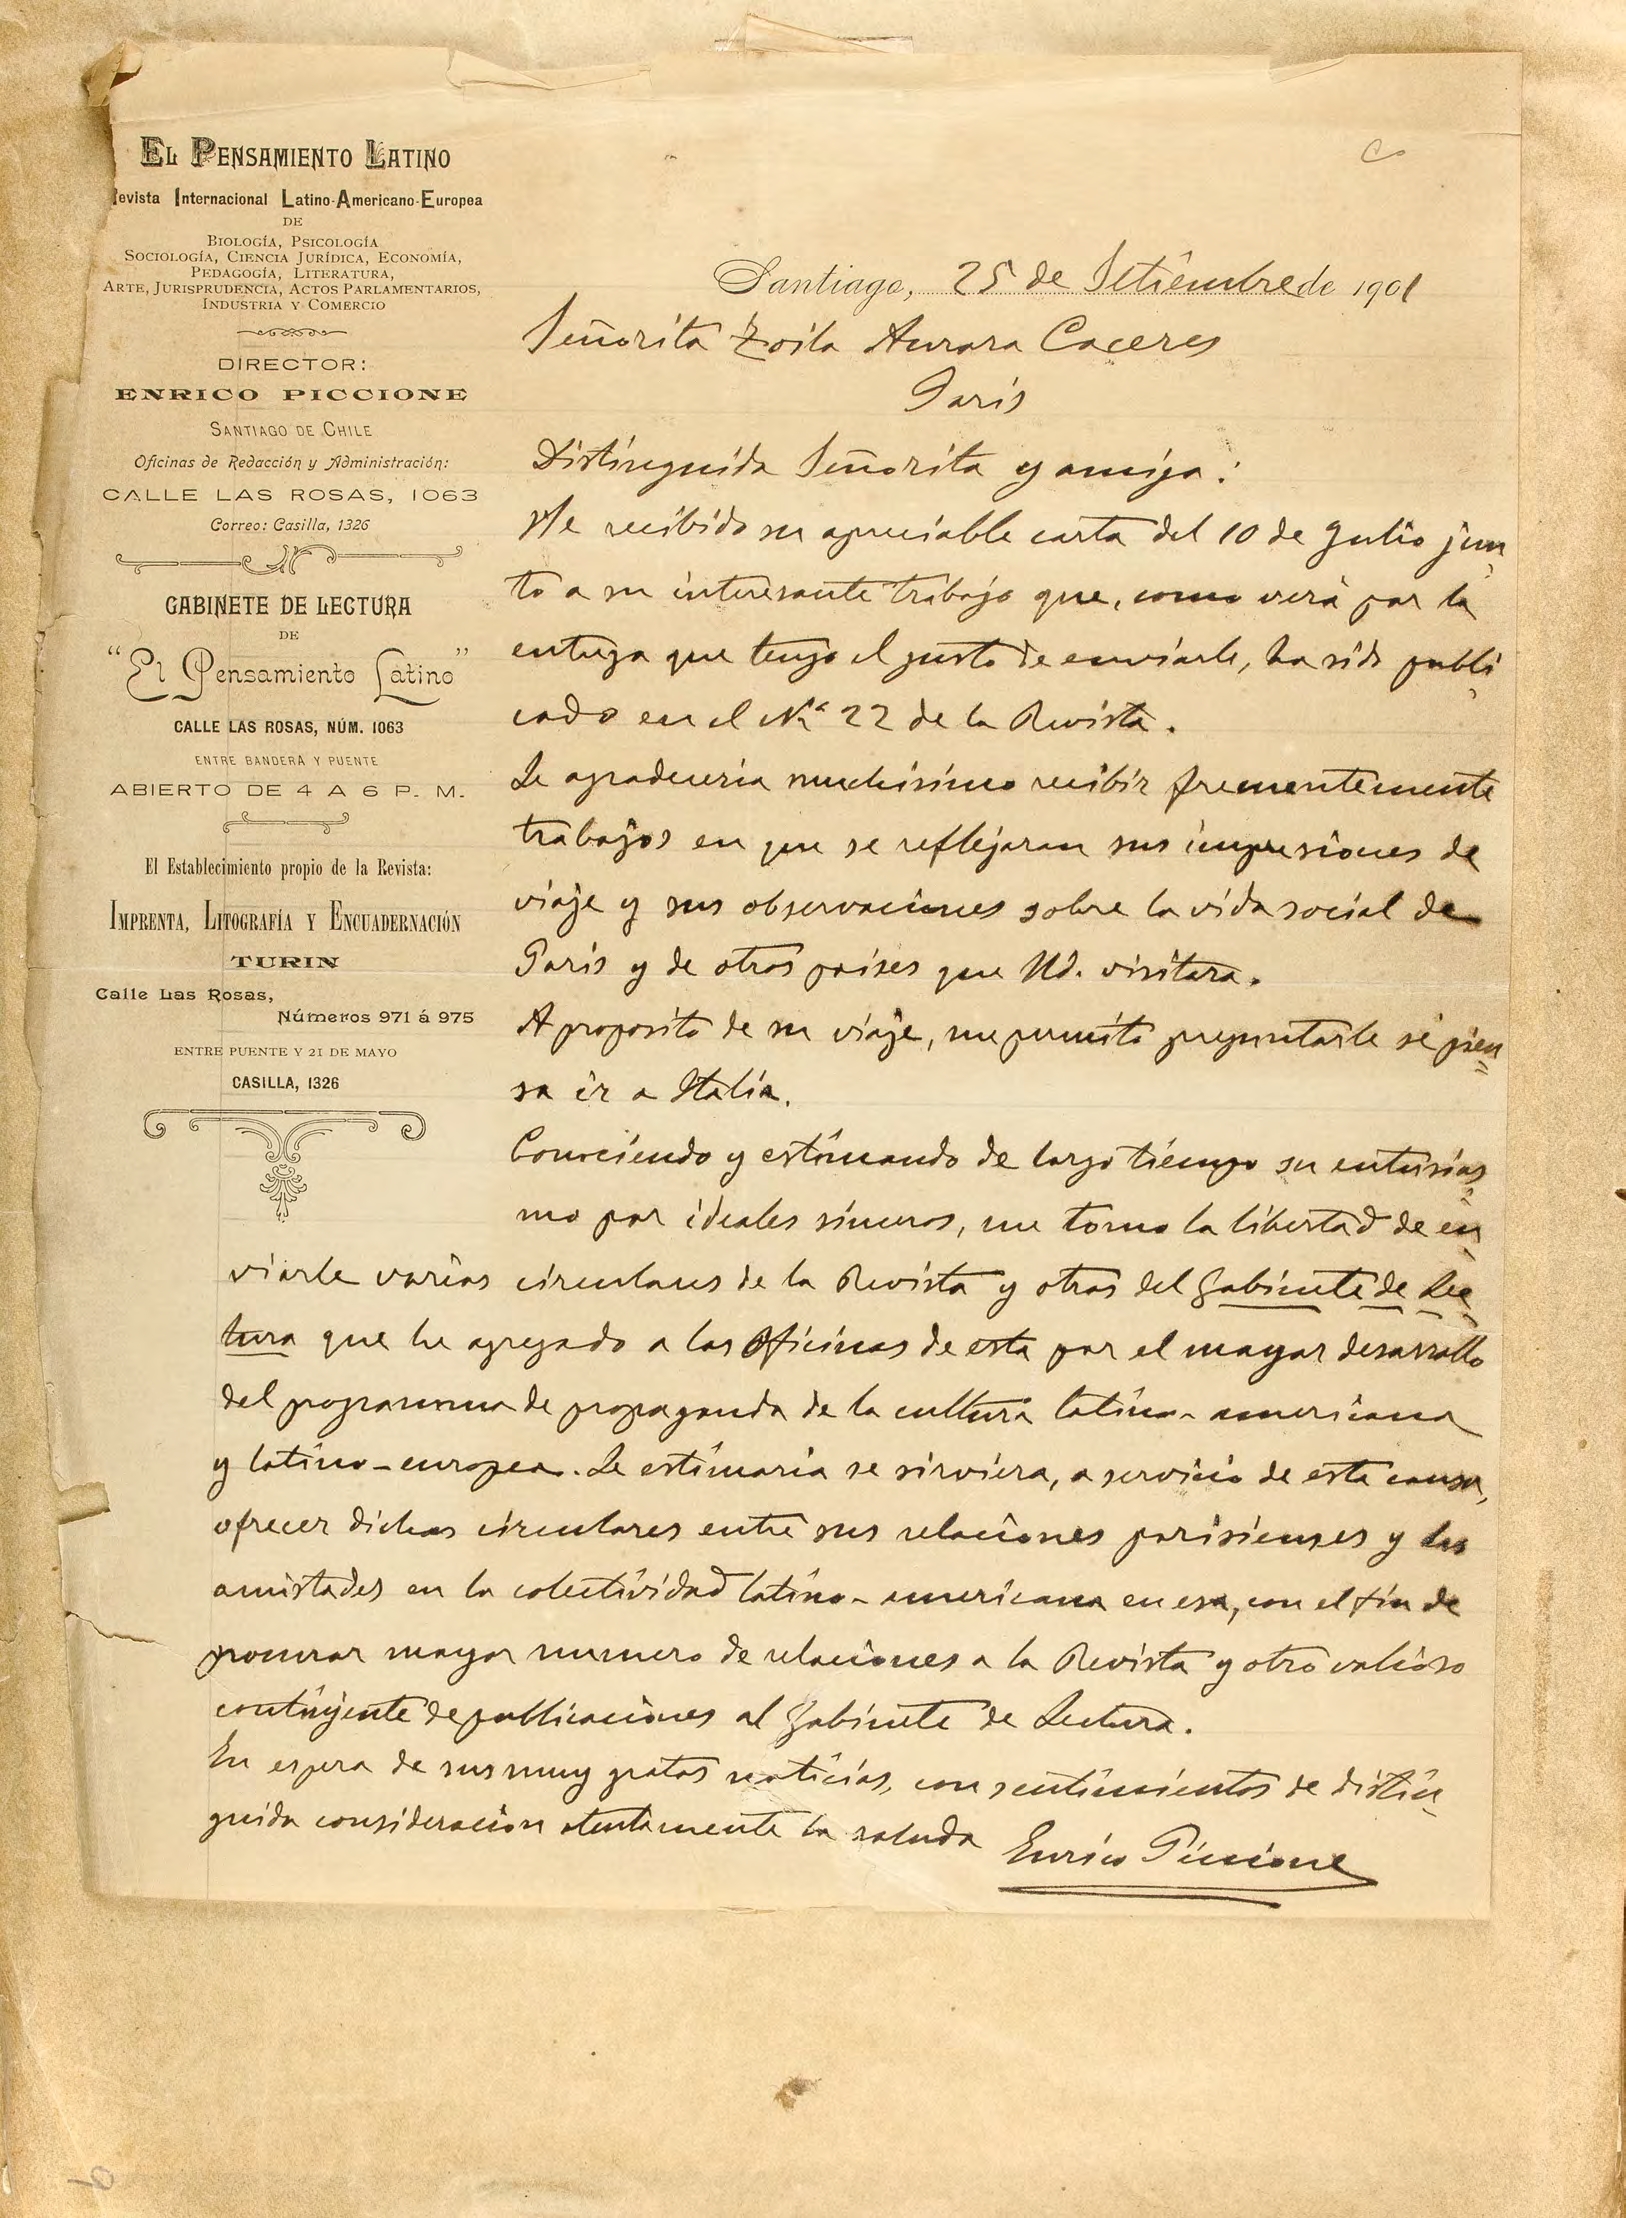 EL PENSAMIENTO LATINO
Revista Internacional Latino-Americano-Europea
DE
BIOLOGÍA, PSICOLOGÍA
SOCIOLOGÍA, CIENCIA JURÍDICA, ECONOMÍA,
PEDAGOGÍA, LITERATURA,
ARTE, JURISPRUDENCIA, ACTOS PARLAMENTARIOS,
INDUSTRIA Y COMERCIO
DIRECTOR:
ENRICO PICCIONE
SANTIAGO DE CHILE
Oficinas de Redacción y Administración:
CALLE LAS ROSAS, 1063
Correo: Casilla, 1326
GABINETE DE LECTURA
DE
"El Pensamiento Latino"
CALLE LAS ROSAS, NÚM. 1063
ENTRE BANDERA Y PUENTE
ABIERTO DE 4 A 6 P. M.
El Establecimiento propio de la Revista:
IMPRENTA, LITOGRAFÍA Y ENCUADERNACIÓN
TURIN
Calle Las Rosas,
Números 971 á 975
ENTRE PUENTE Y 21 DE MAYO
CASILLA, 1326
Santiago, 25 de Setiembre de 1901
Señorita Zoila Aurora Caceres
Paris
Distinguida Señorita y amiga:
He recibido su apreciable carta del 10 de Julio jun
to a su interesante trabajo que, como verá por la
entrega que tengo el gusto de enviarle, ha sido publi
cado en el Nº 22 de la Revista.
Le agradeceria muchisimo recibir frecuentemente
trabajos en que se reflejaran sus impresiones de
viaje y sus observaciones sobre la vida social de
Paris y de otros paises que Ud. visitara.
A proposito de su viaje, me permito preguntarle si pien
sa ir a Italia.
Conociendo y estimando de largo tiempo su entusias
mo por ideales sinceros, me tomo la libertad de en
viarle varias circulares de la Revista y otras del Gabinete de Lec
tura que he agregado a las Oficinas de esta por el mayor desarrollo
del programma de propaganda de la cultura latino-americana
y latino-europea. Le estimaria se sirviera, a servicio de esta causa,
ofrecer dichas circulares entre sus relaciones parisienses y las
amistades en la colectividad latino-americana en esa, con el fin de
procurar mayor numero de relaciones a la Revista y otro valioso
contingente de publicaciones al Gabinete de Lectura.
En espera de sus muy gratas noticias, con sentimientos de distin
guida consideracion atentamente la saluda Enrico Piccione